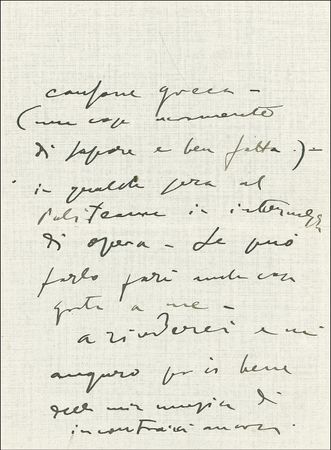 canzone greca -
(una cosa veramente
di sapore e ben fatta.) -
in qualche sera al
Politeama in intermezzo
di opera - Se può
farlo farà anche cosa
grata a me -
a rivederci e mi
auguro per il bene
della mia musica di
incontrarci ancora.